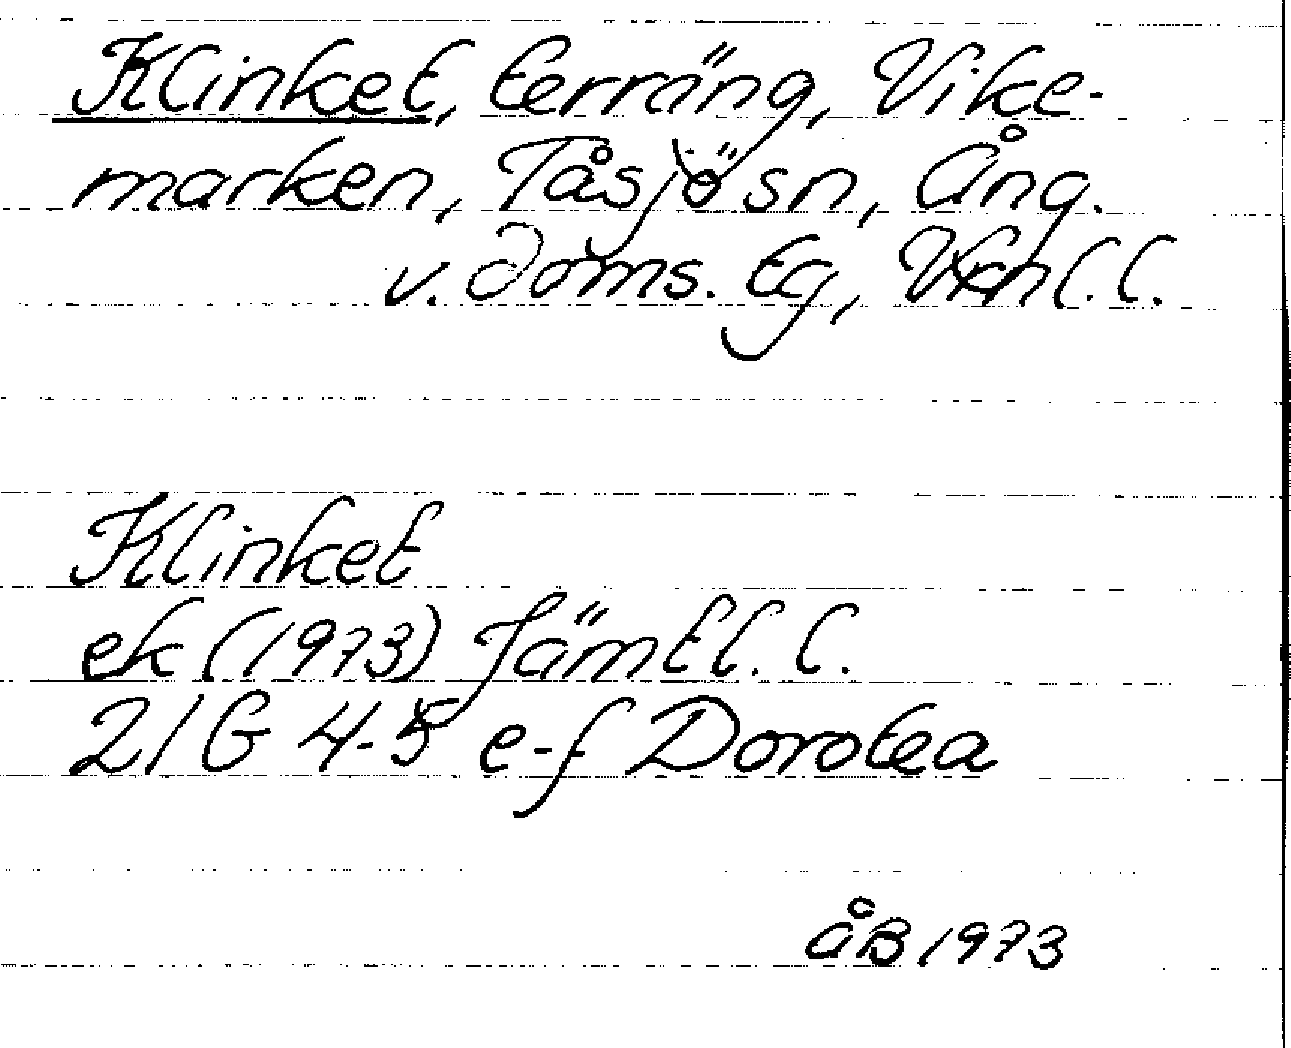 Klinket, terräng, Vike-
marken, Tåsjö sn, Ång.
v. doms. tg, Vnl. l.
Klinket
ek (1973) Jämtl. l.
21 G 4-5 e-f Dorotea
ÅB 1973